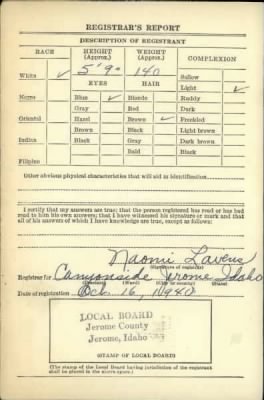 REGISTRAR'S REPORT
DESCRIPTION OF REGISTRANT
RACE HEIGHT (Approx.) WEIGHT (Approx.) COMPLEXION
5' 9" 140
White ✓ Sallow
EYES HAIR Light ✓
Negro Blue ✓ Blonde Ruddy
Gray Red Dark
Oriental Hazel Brown ✓ Freckled
Brown Black Light brown
Indian Black Gray Dark brown
Bald Black
Filipino
Other obvious physical characteristics that will aid in identification
I certify that my answers are true; that the person registered has read or has had
read to him his own answers; that I have witnessed his signature or mark and that
all of his answers of which I have knowledge are true, except as follows:
Naomi Lavens
(Signature of registrar)
Registrar for Canyonside Jerome Idaho
(Precinct) (Ward) (State)
Date of registration Oct. 16, 1940
LOCAL BOARD
Jerome County
Jerome, Idaho
(STAMP OF LOCAL BOARD)
(The stamp of the Local Board having jurisdiction of the registrant
shall be placed in the above space.)